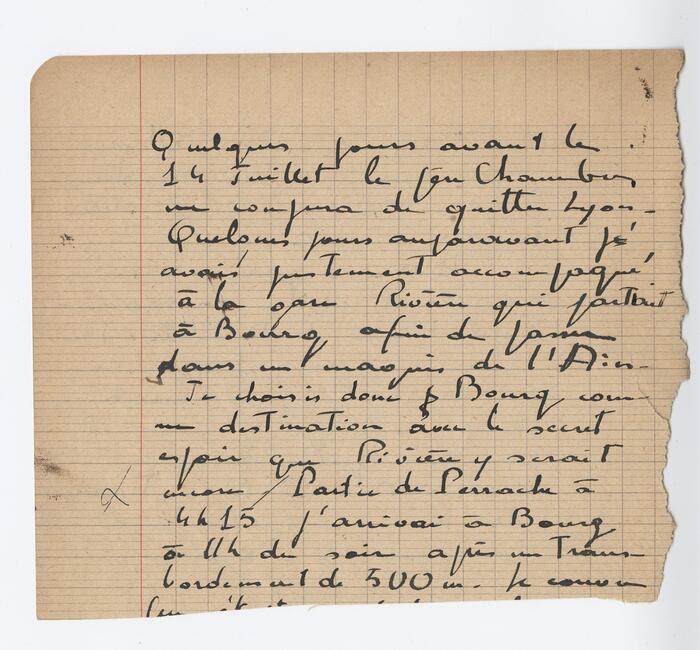 Quelques jours avant le
14 Juillet le père Chambon
me conjura de quitter Lyon -
Quelques jours auparavant j'
avais justement accompagné
à la gare Rivière qui partait
à Bourg afin de passer
dans un maquis de l'Ain -
Je choisis donc Bourg com-
me destination avec le secret
espoir que Rivière y serait
encore / Partie de Perrache à
4h 15 j'arrivai à Bourg
à 11h du soir après un trans-
bordement de 500 m. Le